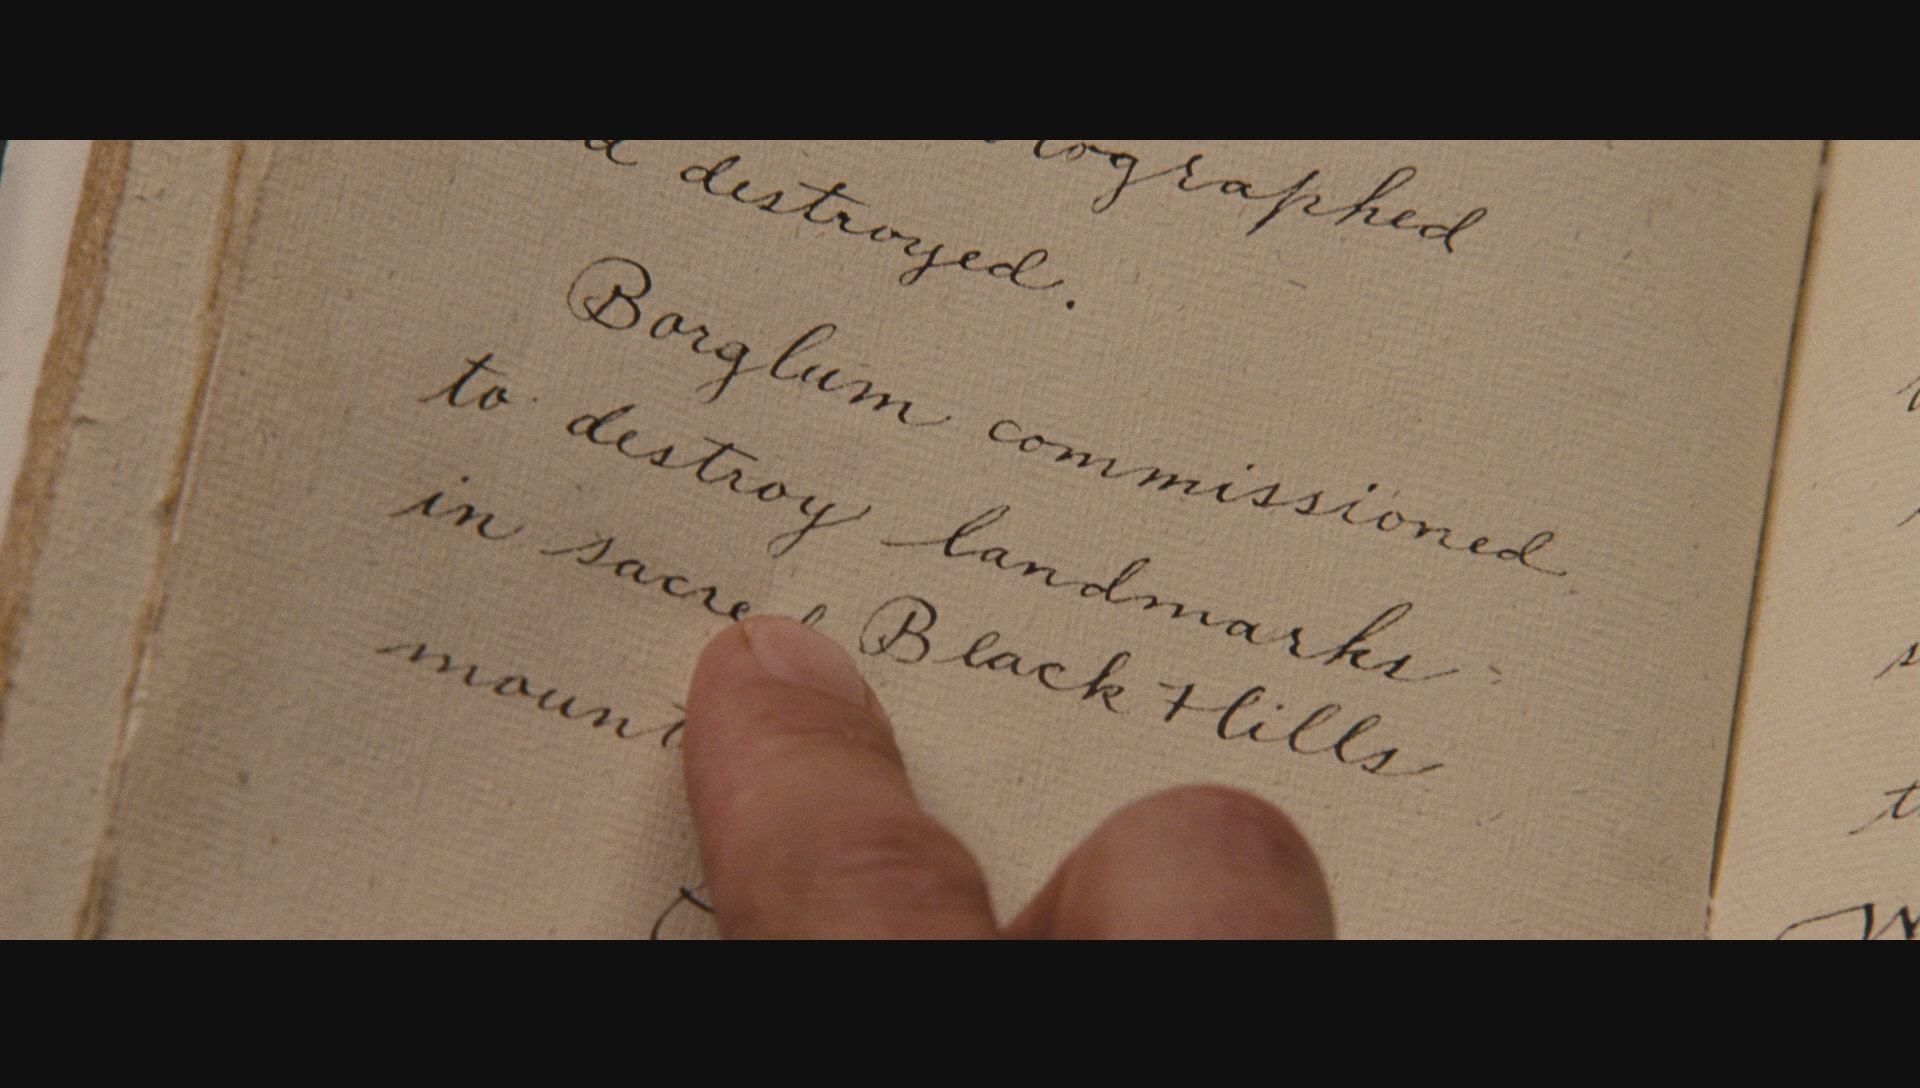 destroyed.
Borglum commissioned
to destroy landmarks
in sacred Black Hills